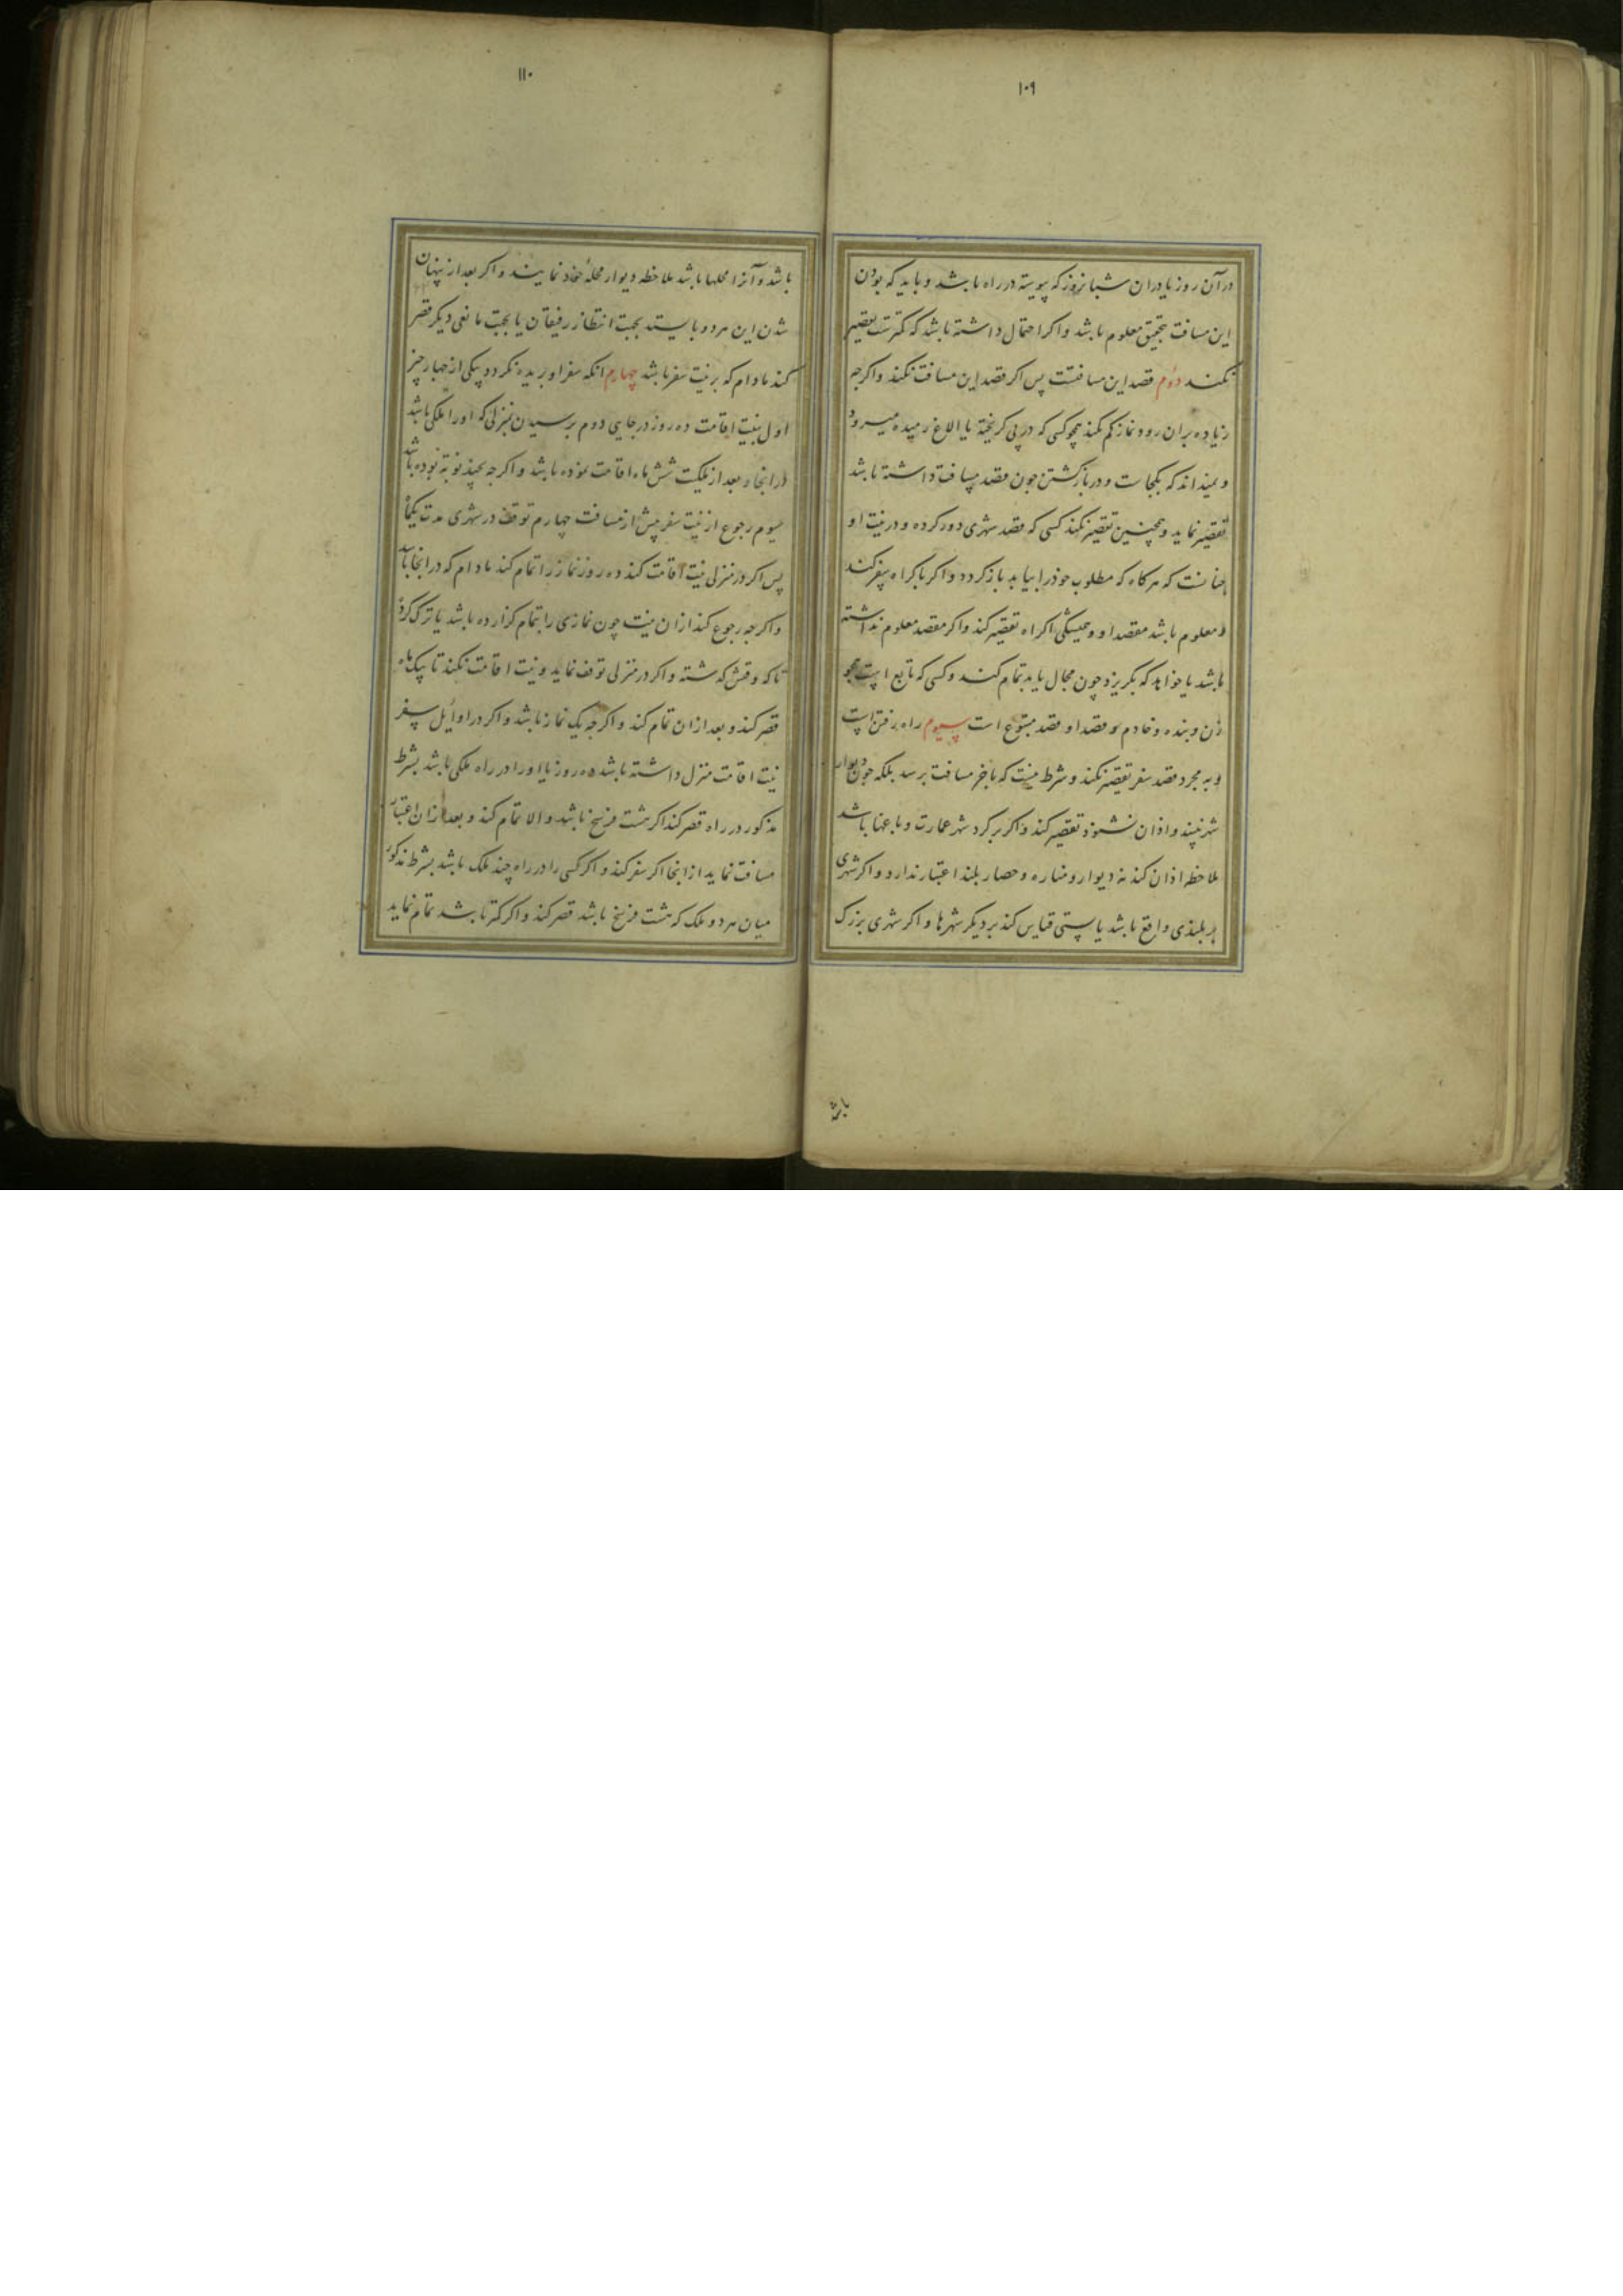 ۱۰۹
در آن روز یا در ان شبانروز که پیوسته در راه باشد و باید که بودن
این مسافت بتحقیق معلوم باشد و اکر احتمال داشته باشد که کمترست تقصیر
نکند دوم قصد این مسافتست پس اکر قصد این مسافت نکند و اکرچه
زیاده بران رود نماز کم نکند همچو کسی که در پی کریخته یا الاغ رمیده میرود
و نمیداند که بکجاست و در بازکشتن چون مقصد مسافت داشته باشد
تقصیر نماید و همچنین تقصیر نکند کسی که قصد شهری دور کرده و در نیت او
چنانست که هرکاه که مطلوب خوذ را بیابد باز کردد و اکر باکراه سفر کند
و معلوم باشد مقصد او و همیشکی اکراه تقصیر کند و اکر مقصد معلوم نداشته
باشد یا خواهد که بکریزد چون مجال یابد تمام کند و کسی که تابع است همچو
زن و بنده و خادم و قصد او قصد متبوع است سیوم راه رفتن است
و به مجرد قصد سفر تقصیر نکند و شرط نیست که باخر مسافت برسد بلکه چون دیوار
شهر نبیند و اذان نشنود تقصیر کند و اکر بر کرد شهر عمارت و باغها باشد
ملاحظه اذان کند نه دیوار و مناره و حصار بلند اعتبار ندارد و اکر شهری
بر بلندی واقع باشد یا پستی قیاس کند بر دیکر شهرها و اکر شهری بزرک
باشد
۱۱۰
باشد و آنرا محلها باشد ملاحظه دیوار محلهٔ خود نمایند و اکر بعد از پنهان
شدن این هر دو بایستد بجهت انتظار رفیقان یا بجهت مانعی دیکر قصر
کند مادام که بر نیت سفر باشد چهارم انکه سفر او بریده نکردد بیکی از چهار چیز
اول بنیت اقامت ده روز در جایی دوم برسیدن بمنزلی که او را ملکی باشد
در انجا و بعد از ملکیت شش ماه اقامت نموده باشد و اکرچه بچند نوبة بوده باشد
سیوم رجوع از نیت سفر پیش از مسافت چهارم توقف در شهری مدت یکماه
پس اکر در منزلی نیت اقامت کند ده روز نماز را تمام کند مادام که در انجا باشد
و اکرچه رجوع کند از ان نیت چون نمازی را بتمام کزارده باشد یا ترک کرده
تا که وقتش کذشته و اکر در منزلی توقف نماید و نیت اقامت نکند تا یک ماه
قصر کند و بعد از ان تمام کند و اکرچه یک نماز باشد و اکر در اوایل سفر
نیت اقامت منزل داشته باشد ده روز یا او را در راه ملکی باشد بشرط
مذکور در راه قصر کند اکر هشت فرسخ باشد و الا تمام کند و بعد از ان اعتبار
مسافت نماید از انجا اکر سفر کند و اکر کسی را در راه چند ملک باشد بشرط مذکور
میان هر دو ملک که هشت فرسخ باشد قصر کند و اکر کمتر باشد تمام نماید